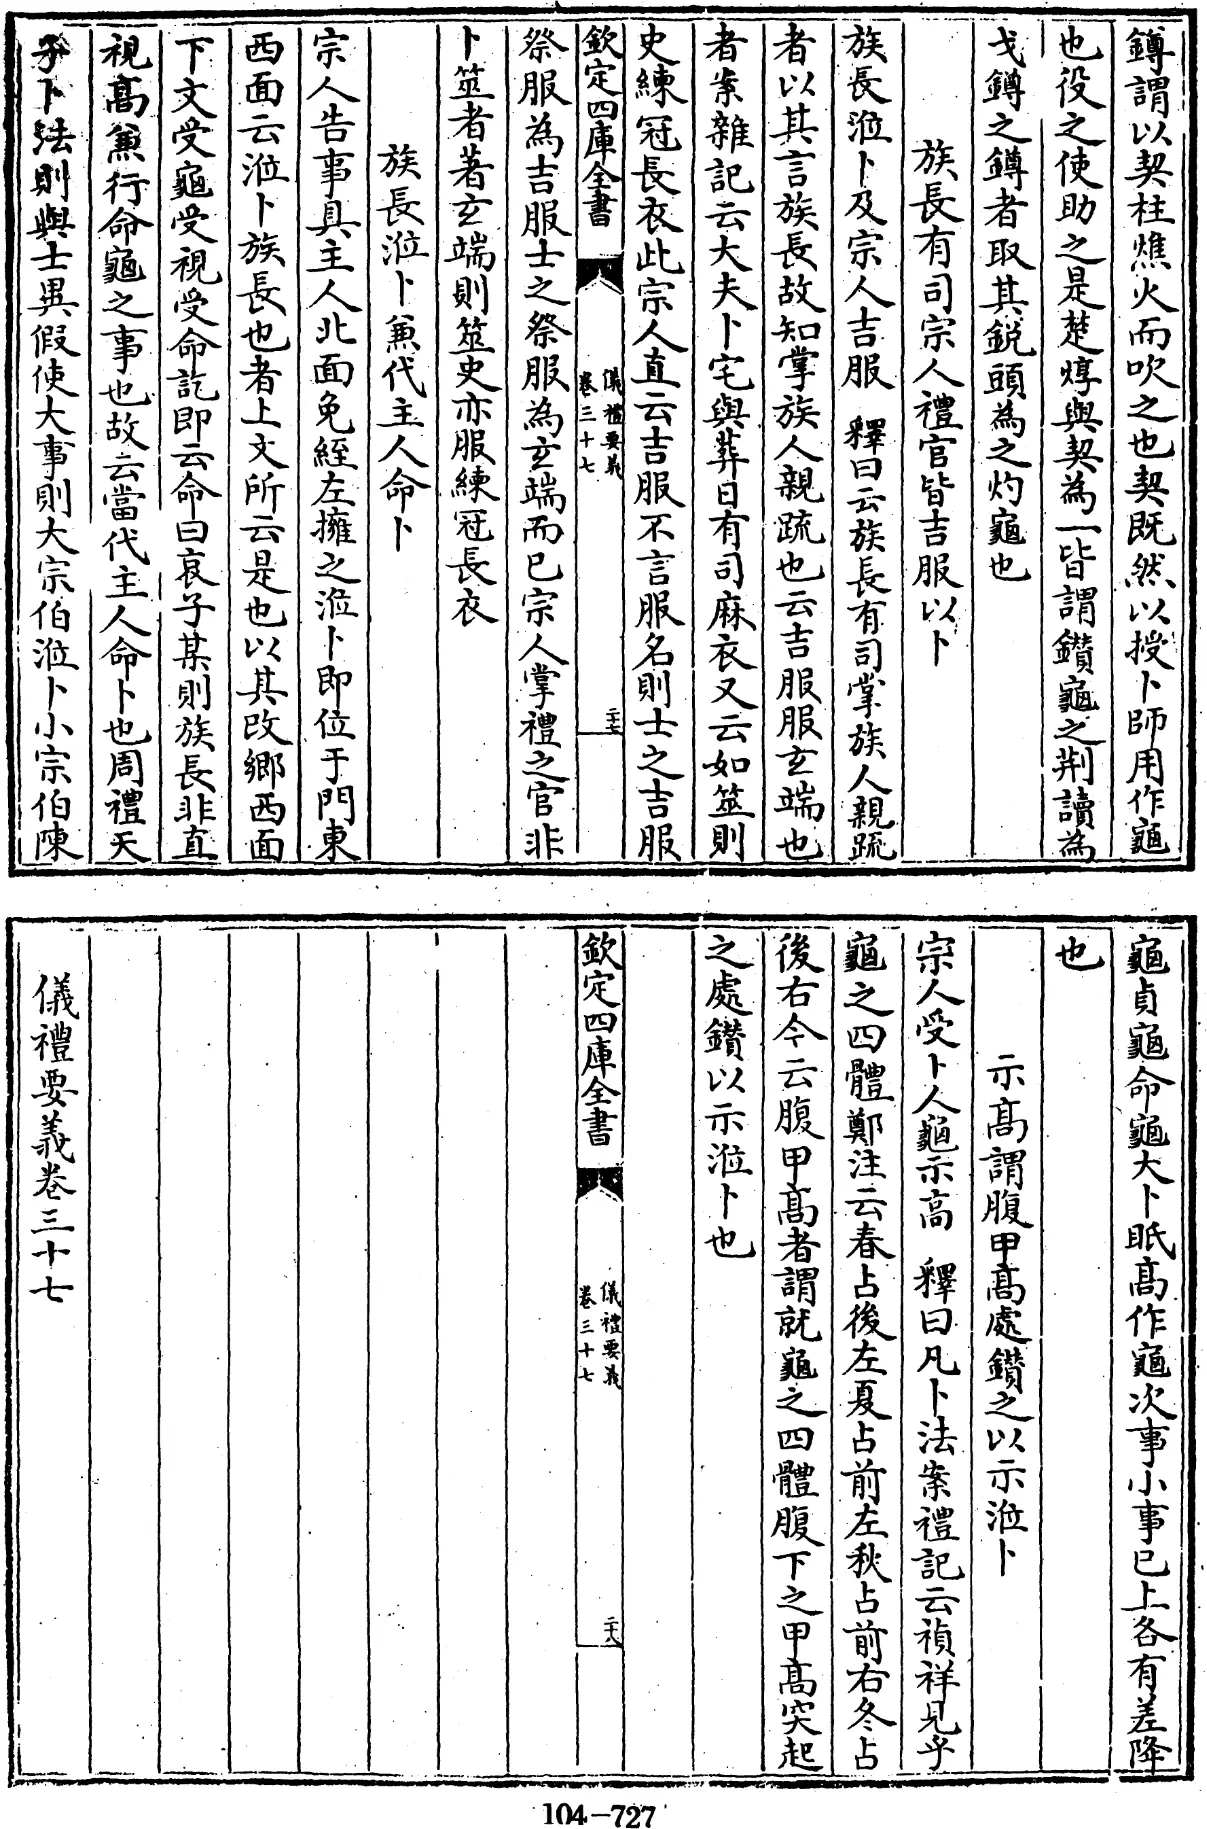 鐏謂以契柱燋火而吹之也契既然以授卜師用作龜
也役之使助之是楚焞與契為一皆謂鑚龜之荆讀為
戈鐏之鐏者取其鋭頭為之灼龜也
族長有司宗人禮官皆吉服以卜
族長涖卜及宗人吉服 釋曰云族長有司掌族人親疏
者以其言族長故知掌族人親疏也云吉服服玄端也
者案雜記云大夫卜宅與葬日有司麻衣又云如筮則
史練冠長衣此宗人直云吉服不言服名則士之吉服
欽定四庫全書
儀禮要義
卷三十七
二十七
祭服為吉服士之祭服為玄端而已宗人掌禮之官非
卜筮者著玄端則筮史亦服練冠長衣
族長涖卜兼代主人命卜
宗人告事具主人北面免絰左擁之涖卜即位于門東
西面云涖卜族長也者上文所云是也以其改鄉西面
下文受龜受視受命訖即云命曰哀子某則族長非直
視高兼行命龜之事也故云當代主人命卜也周禮天
子卜法則與士異假使大事則大宗伯涖卜小宗伯陳
龜貞龜命龜大卜眡高作龜次事小事已上各有差降
也
示高謂腹甲高處鑚之以示涖卜
宗人受卜人龜示高 釋曰凡卜法案禮記云禎祥見乎
龜之四體鄭注云春占後左夏占前左秋占前右冬占
後右今云腹甲高者謂就龜之四體腹下之甲高突起
之處鑚以示涖卜也
欽定四庫全書
儀禮要義
卷三十七
二十八
儀禮要義卷三十七
104-727